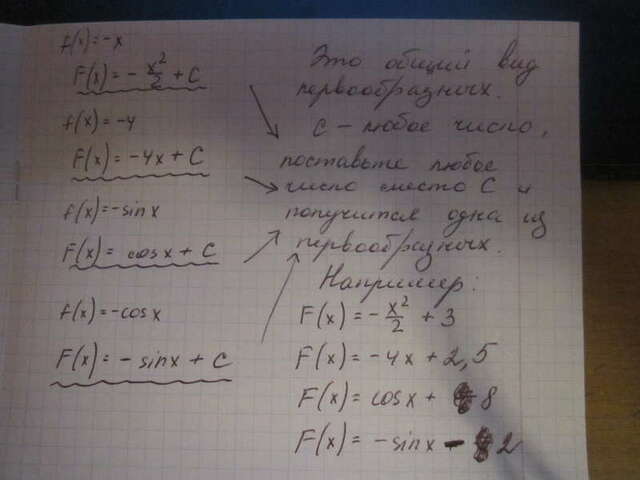 f(x)=-x
F(x)=-x²/2+C
f(x)=-4
F(x)=-4x+C
f(x)=-sinx
F(x)=cosx+C
f(x)=-cosx
F(x)=-sinx+C
Это общий вид
первообразных.
С - любое число,
поставьте любое
число вместо С и
получится одна из
первообразных.
Например:
F(x)=-x²/2+3
F(x)=-4x+2,5
F(x)=cosx+8
F(x)=-sinx-2